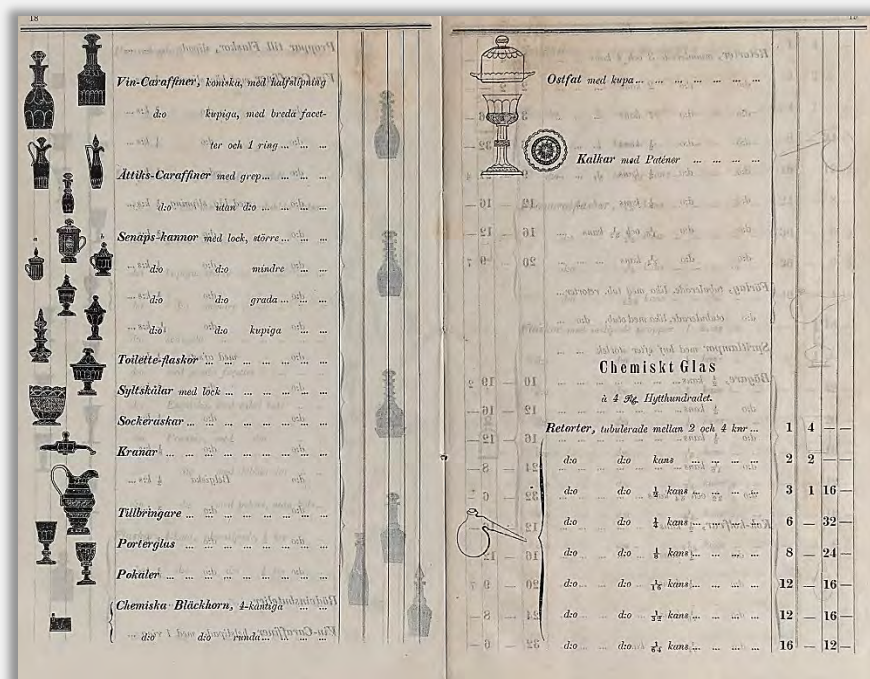 18
Vin-Caraffiner, koniska, med halfslipning
d:o kupiga, med breda facet-
ter och 1 ring ... ... ...
Ättiks-Caraffiner med grep... ... ...
d:o utan d:o ... ... ...
Senaps-kannor med lock, större ... ... ...
d:o d:o mindre ... ...
d:o d:o grada ... ...
d:o d:o kupiga ... ...
Toilette-flaskor ... ... ... ... ... ...
Syltskålar med lock ... ... ... ... ...
Sockeraskar ... ... ... ... ... ...
Kranar ... ... ... ... ... ... ...
Tillbringare ... ... ... ... ... ...
Porterglas ... ... ... ... ... ...
Pokaler ... ... ... ... ... ... ...
Chemiska Bläckhorn, 4-kantiga ... ...
d:o d:o runda ... ... ... ...
Ostfat med kupa ... ... ... ... ... ...
Kalkar med Paténer ... ... ... ...
Chemiskt Glas
à 4 Rg. Hytthundradet.
Retorter, tubulerade mellan 2 och 4 knr ... 1 4 — —
d:o d:o kans ... ... ... ... 2 2 — —
d:o d:o ½ kans ... ... ... ... 3 1 16 —
d:o d:o ¼ kans ... ... ... ... 6 — 32 —
d:o d:o ⅛ kans ... ... ... ... 8 — 24 —
d:o d:o 1/16 kans ... ... ... ... 12 — 16 —
d:o d:o 1/32 kans ... ... ... ... 12 — 16 —
d:o d:o 1/64 kans ... ... ... ... 16 — 12 —